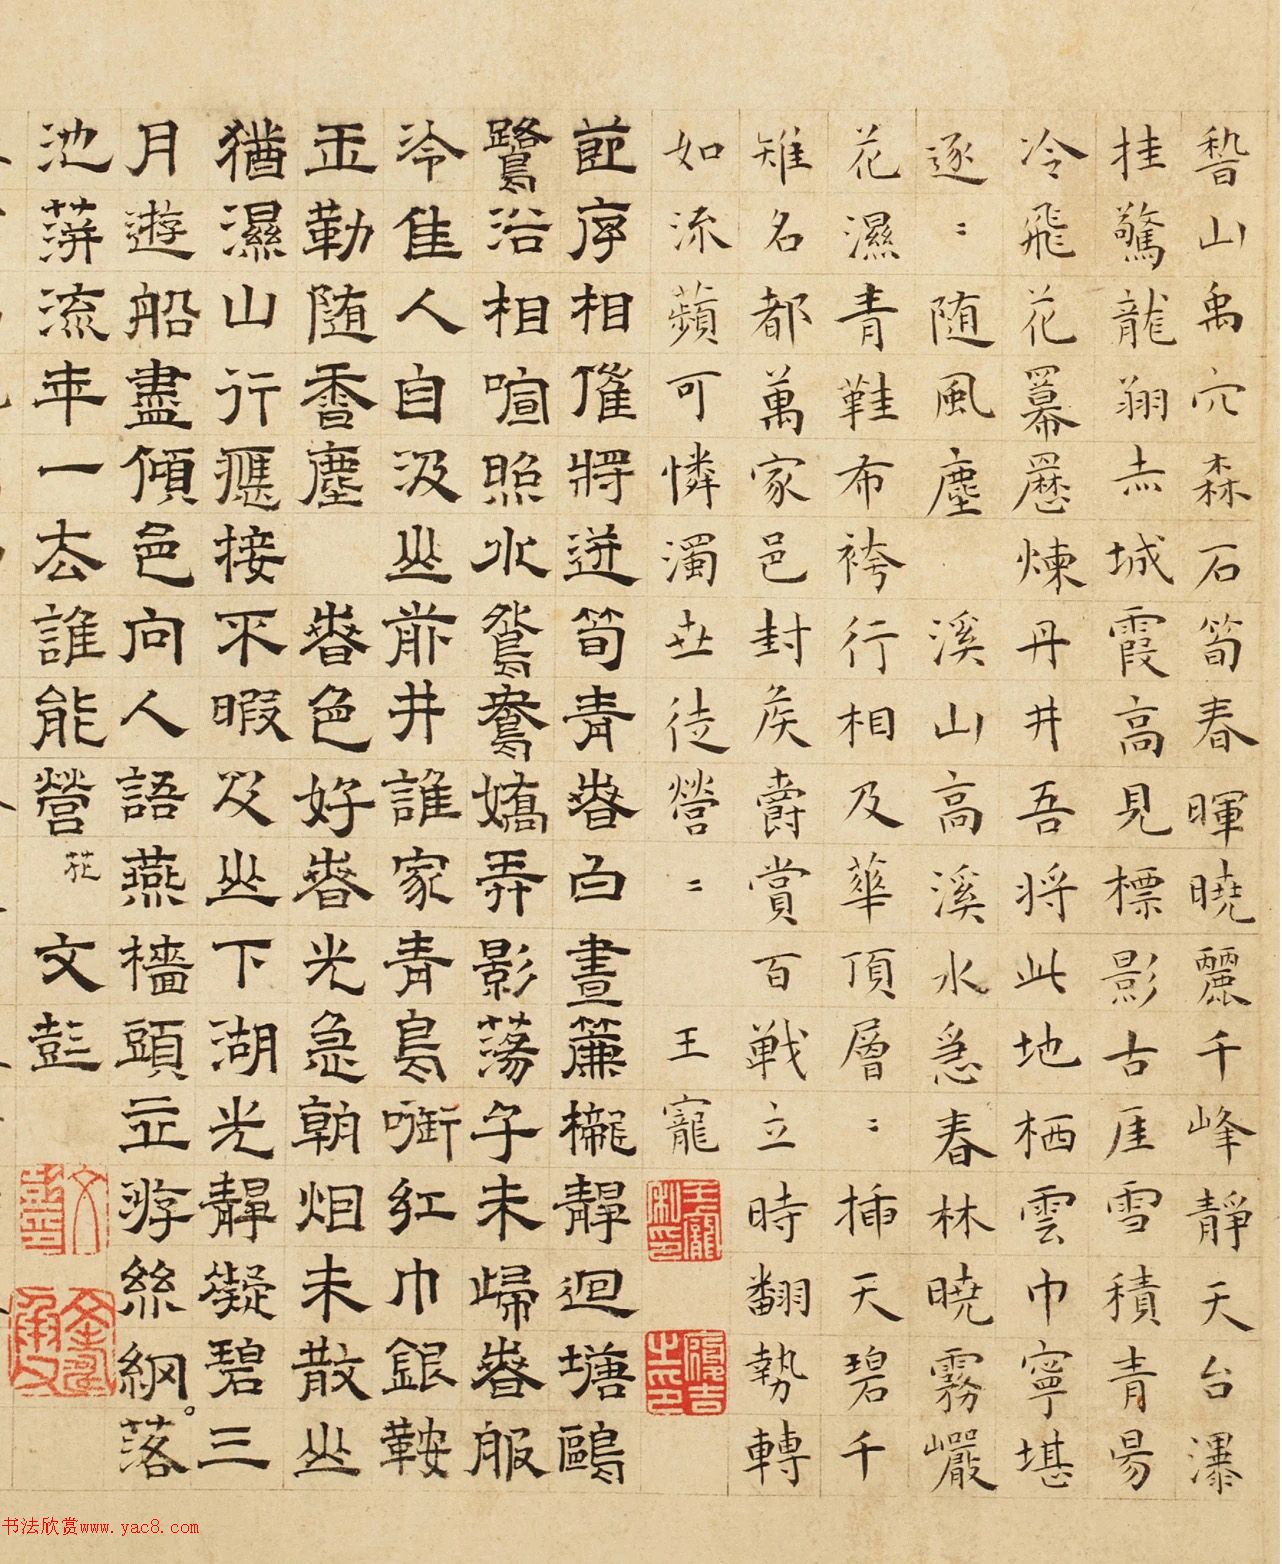 嵇山禹穴森石筍春暉曉麗千峰靜天台瀑
挂驚龍翔赤城霞高見標影古厓雪積青陽
冷飛花羃䍥煉丹井吾將此地栖雲巾寧堪
逐〻隨風塵 溪山高溪水急春林曉霧巖
花濕青鞋布袴行相及華頂層〻插天碧千
雉名都萬家邑封侯爵賞百戰立時翻勢轉
如流蘋可憐濁世徒營〻 王寵
節序相催將迸筍青春白晝簾櫳靜迴塘鷗
鷺浴相喧照水鴛鴦嬌弄影蕩子未歸春服
冷佳人自汲山前井誰家青鳥啣紅巾銀鞍
玉勒隨香塵 春色好春光急朝烟未散山
猶濕山行應接不暇及山下湖光靜凝碧三
月遊船盡傾邑向人語燕檣頭立游絲網落
池萍流年一去誰能營 花 文彭
书法欣赏www.yac8.com